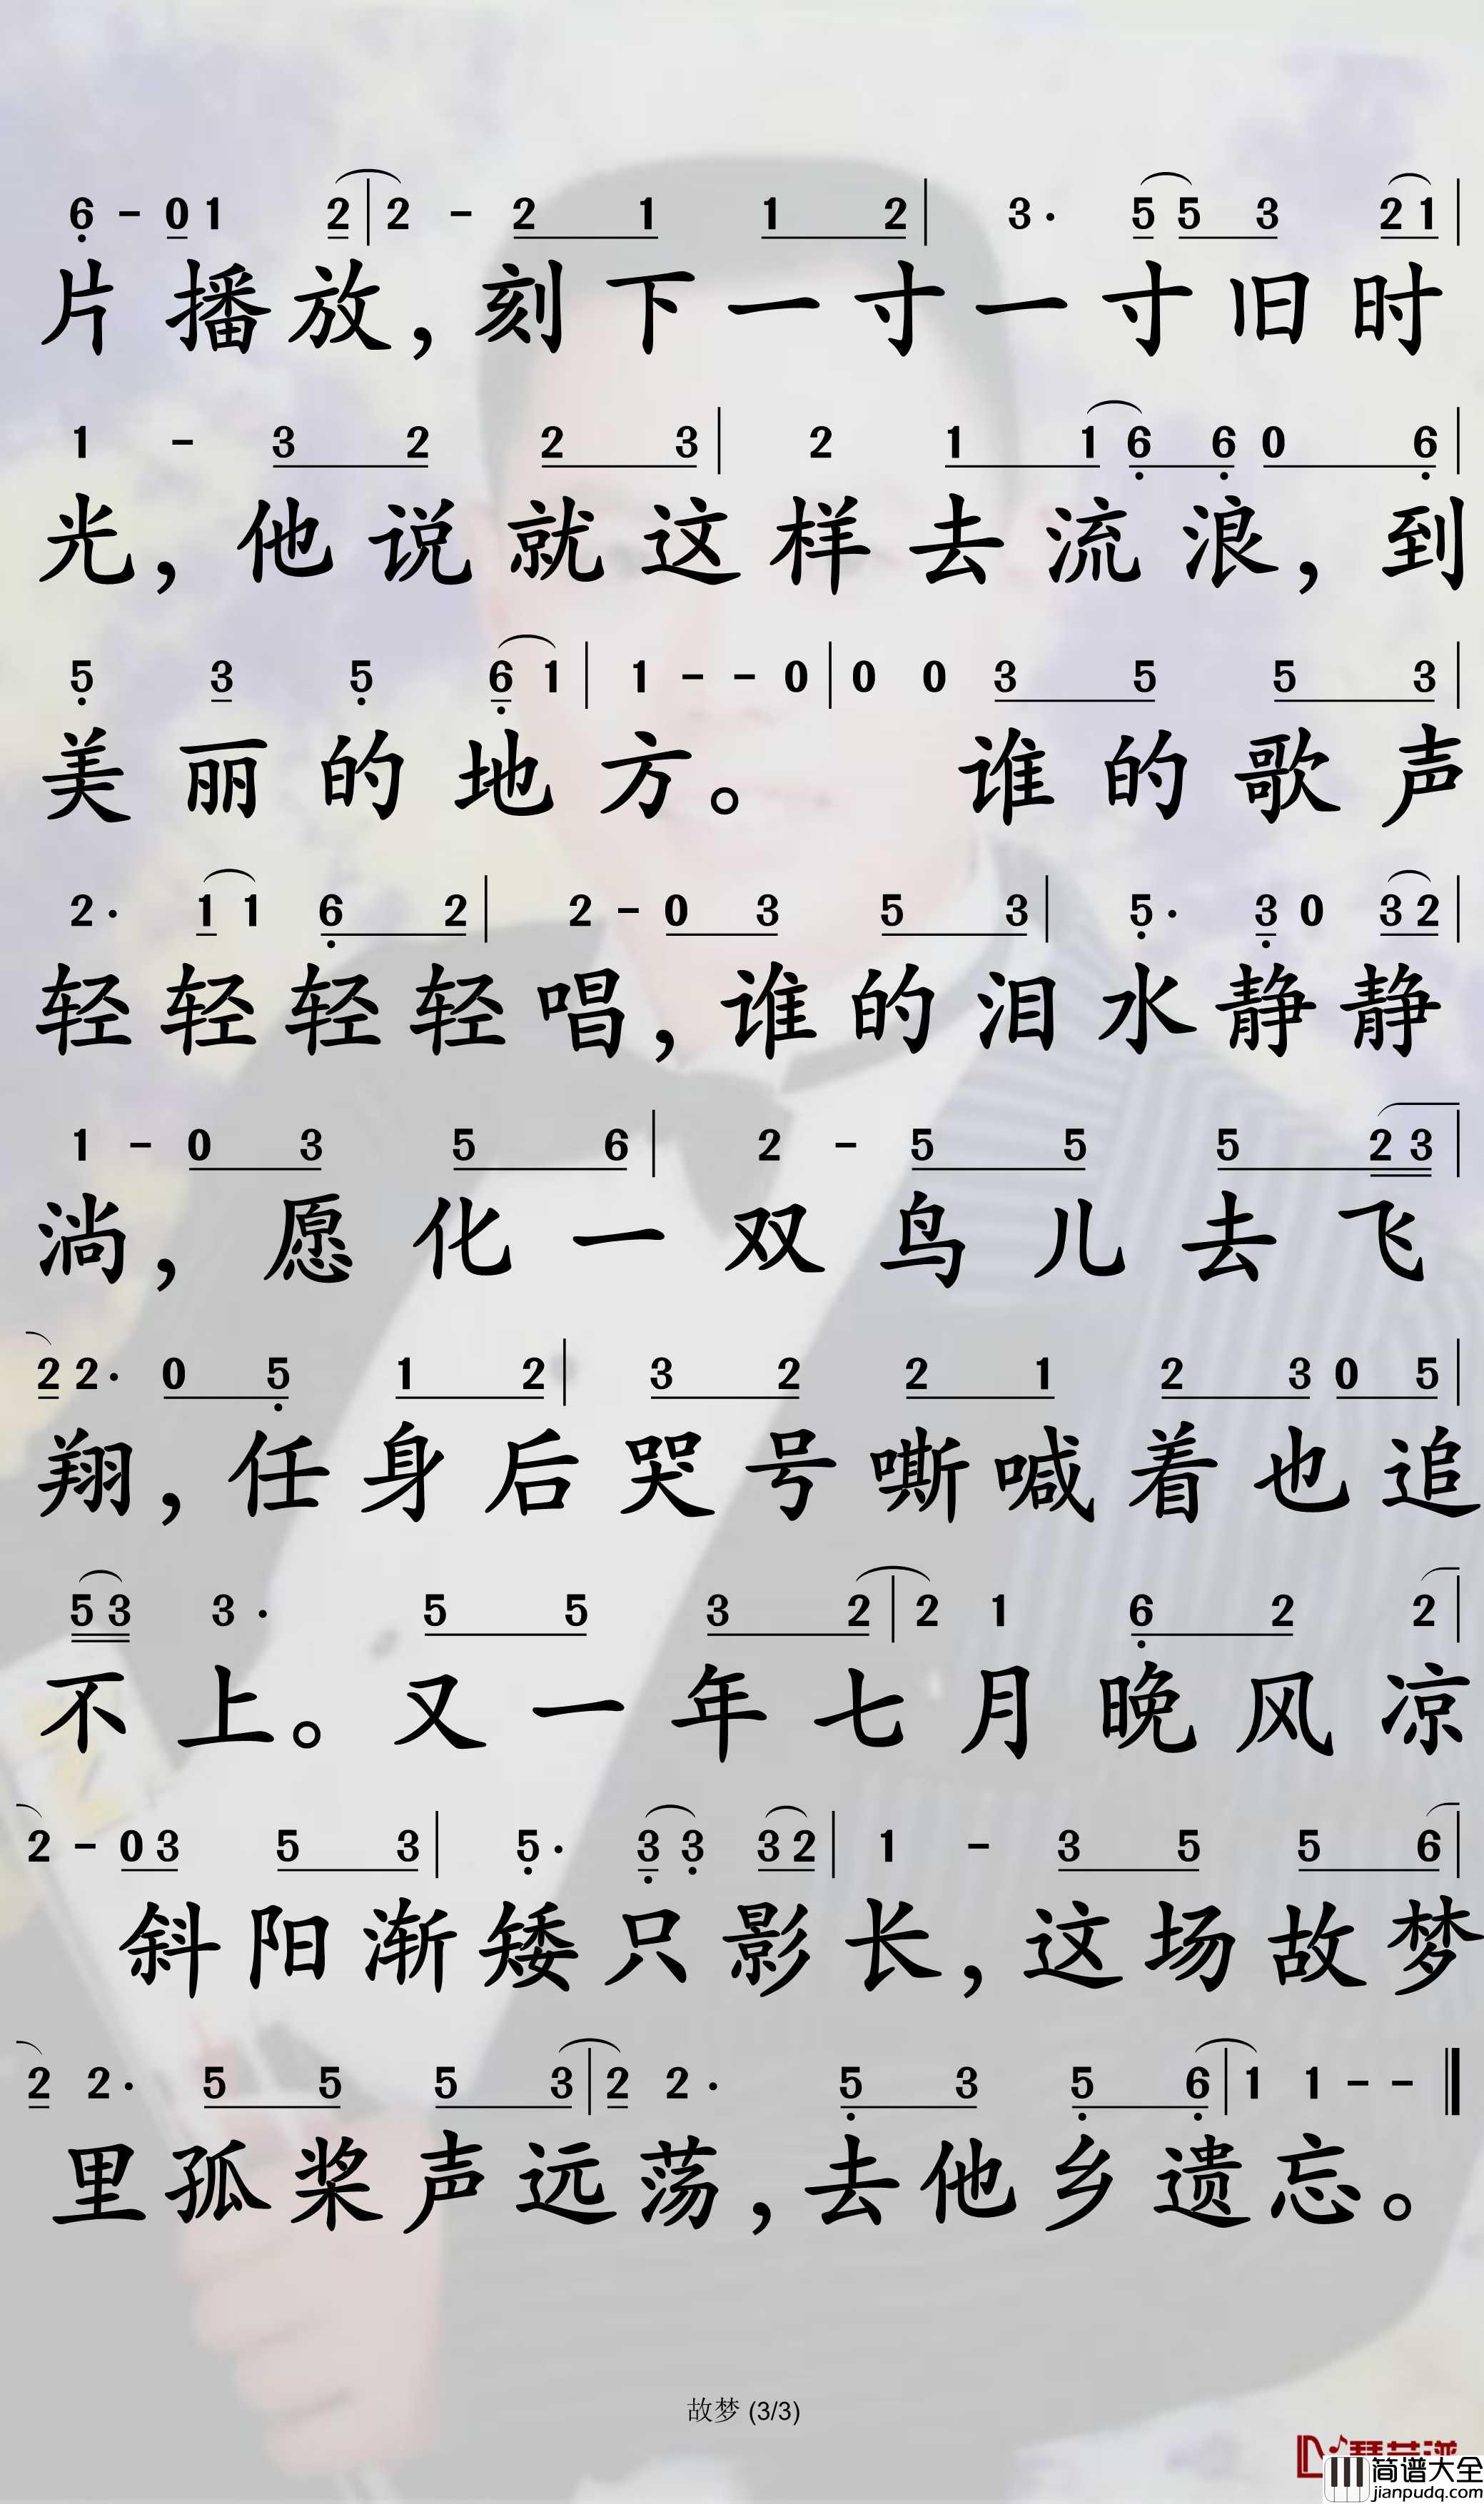 6 - 0 1 2 | 2 - 2 1 1 2 | 3 · 5 5 3 2 1 |
片播放，刻下一寸一寸旧时
1 - 3 2 2 3 | 2 1 1 6 6 0 6 |
光，他说就这样去流浪，到
5 3 5 6 1 | 1 - - 0 | 0 0 3 5 5 3 |
美丽的地方。 谁的歌声
2 · 1 1 6 2 | 2 - 0 3 5 3 | 5 · 3 0 3 2 |
轻轻轻轻唱，谁的泪水静静
1 - 0 3 5 6 | 2 - 5 5 5 2 3 |
淌，愿化一双鸟儿去飞
2 2 · 0 5 1 2 | 3 2 2 1 2 3 0 5 |
翔，任身后哭号嘶喊着也追
5 3 3 · 5 5 3 2 | 2 1 6 2 2 |
不上。又一年七月晚风凉
2 - 0 3 5 3 | 5 · 3 3 3 2 | 1 - 3 5 5 6 |
斜阳渐矮只影长，这场故梦
2 2 · 5 5 5 3 | 2 2 · 5 3 5 6 | 1 1 - -
里孤桨声远荡，去他乡遗忘。
故梦 (3/3)
简谱大全
jianpudq.com